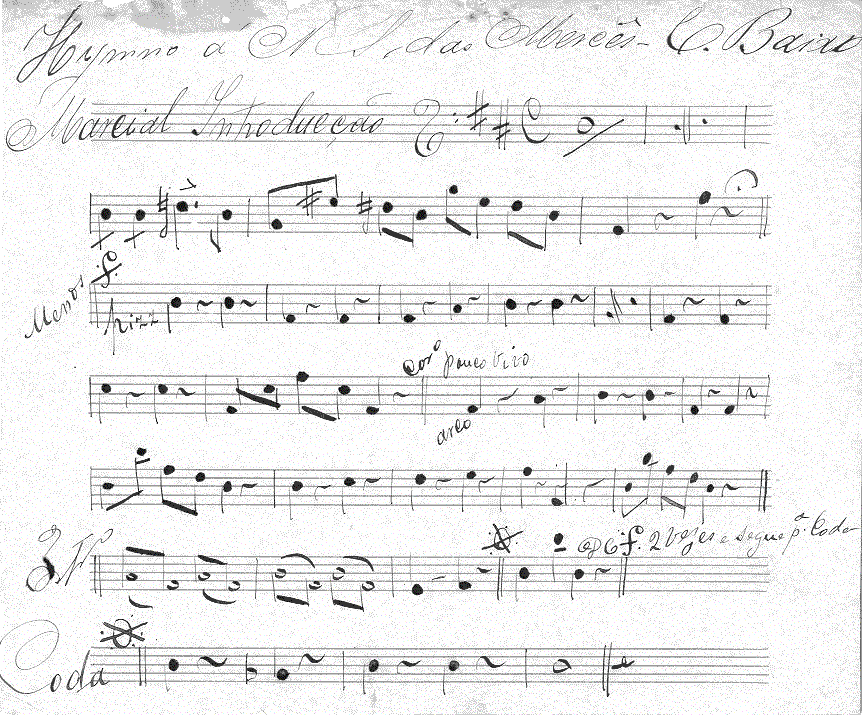 Hymno á N. S. das Mercês - C. Baixo
Marcial Introducção
Menos
pizz
Coro pouco vivo
arco
2 vezes e segue pa. Coda
Coda